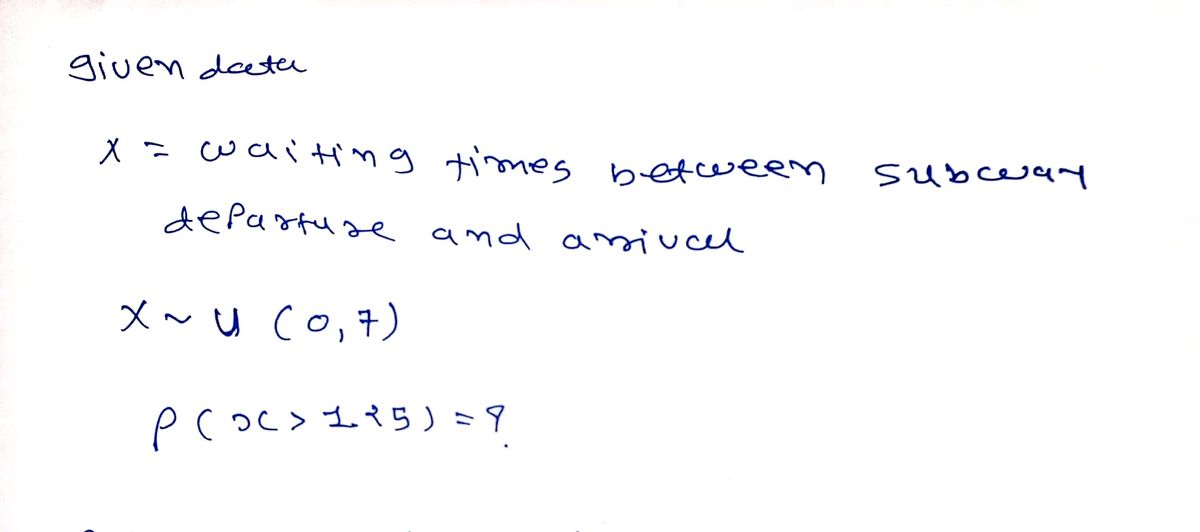 given data
X = waiting times between subway
departure and arrival
X ~ U (0,7)
P(x > 1.25) = ?